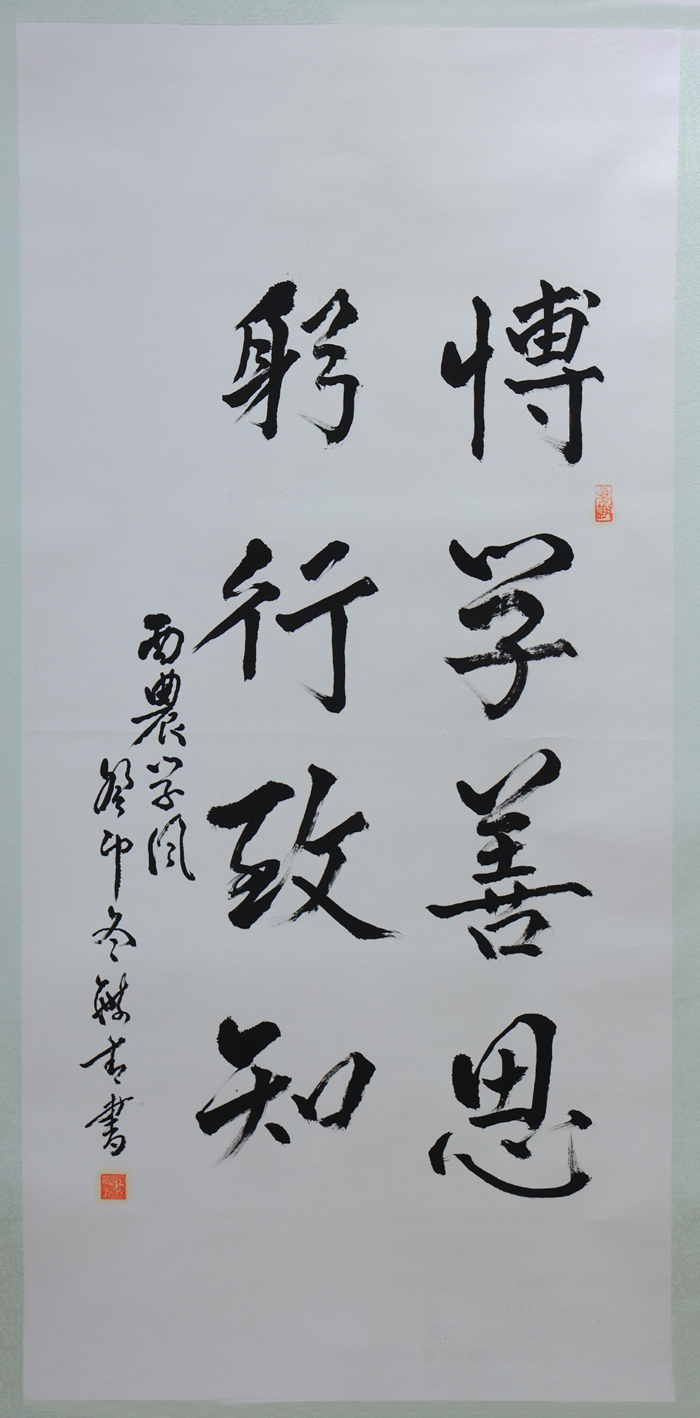 博学善思
躬行致知
西農学风
癸卯冬 书